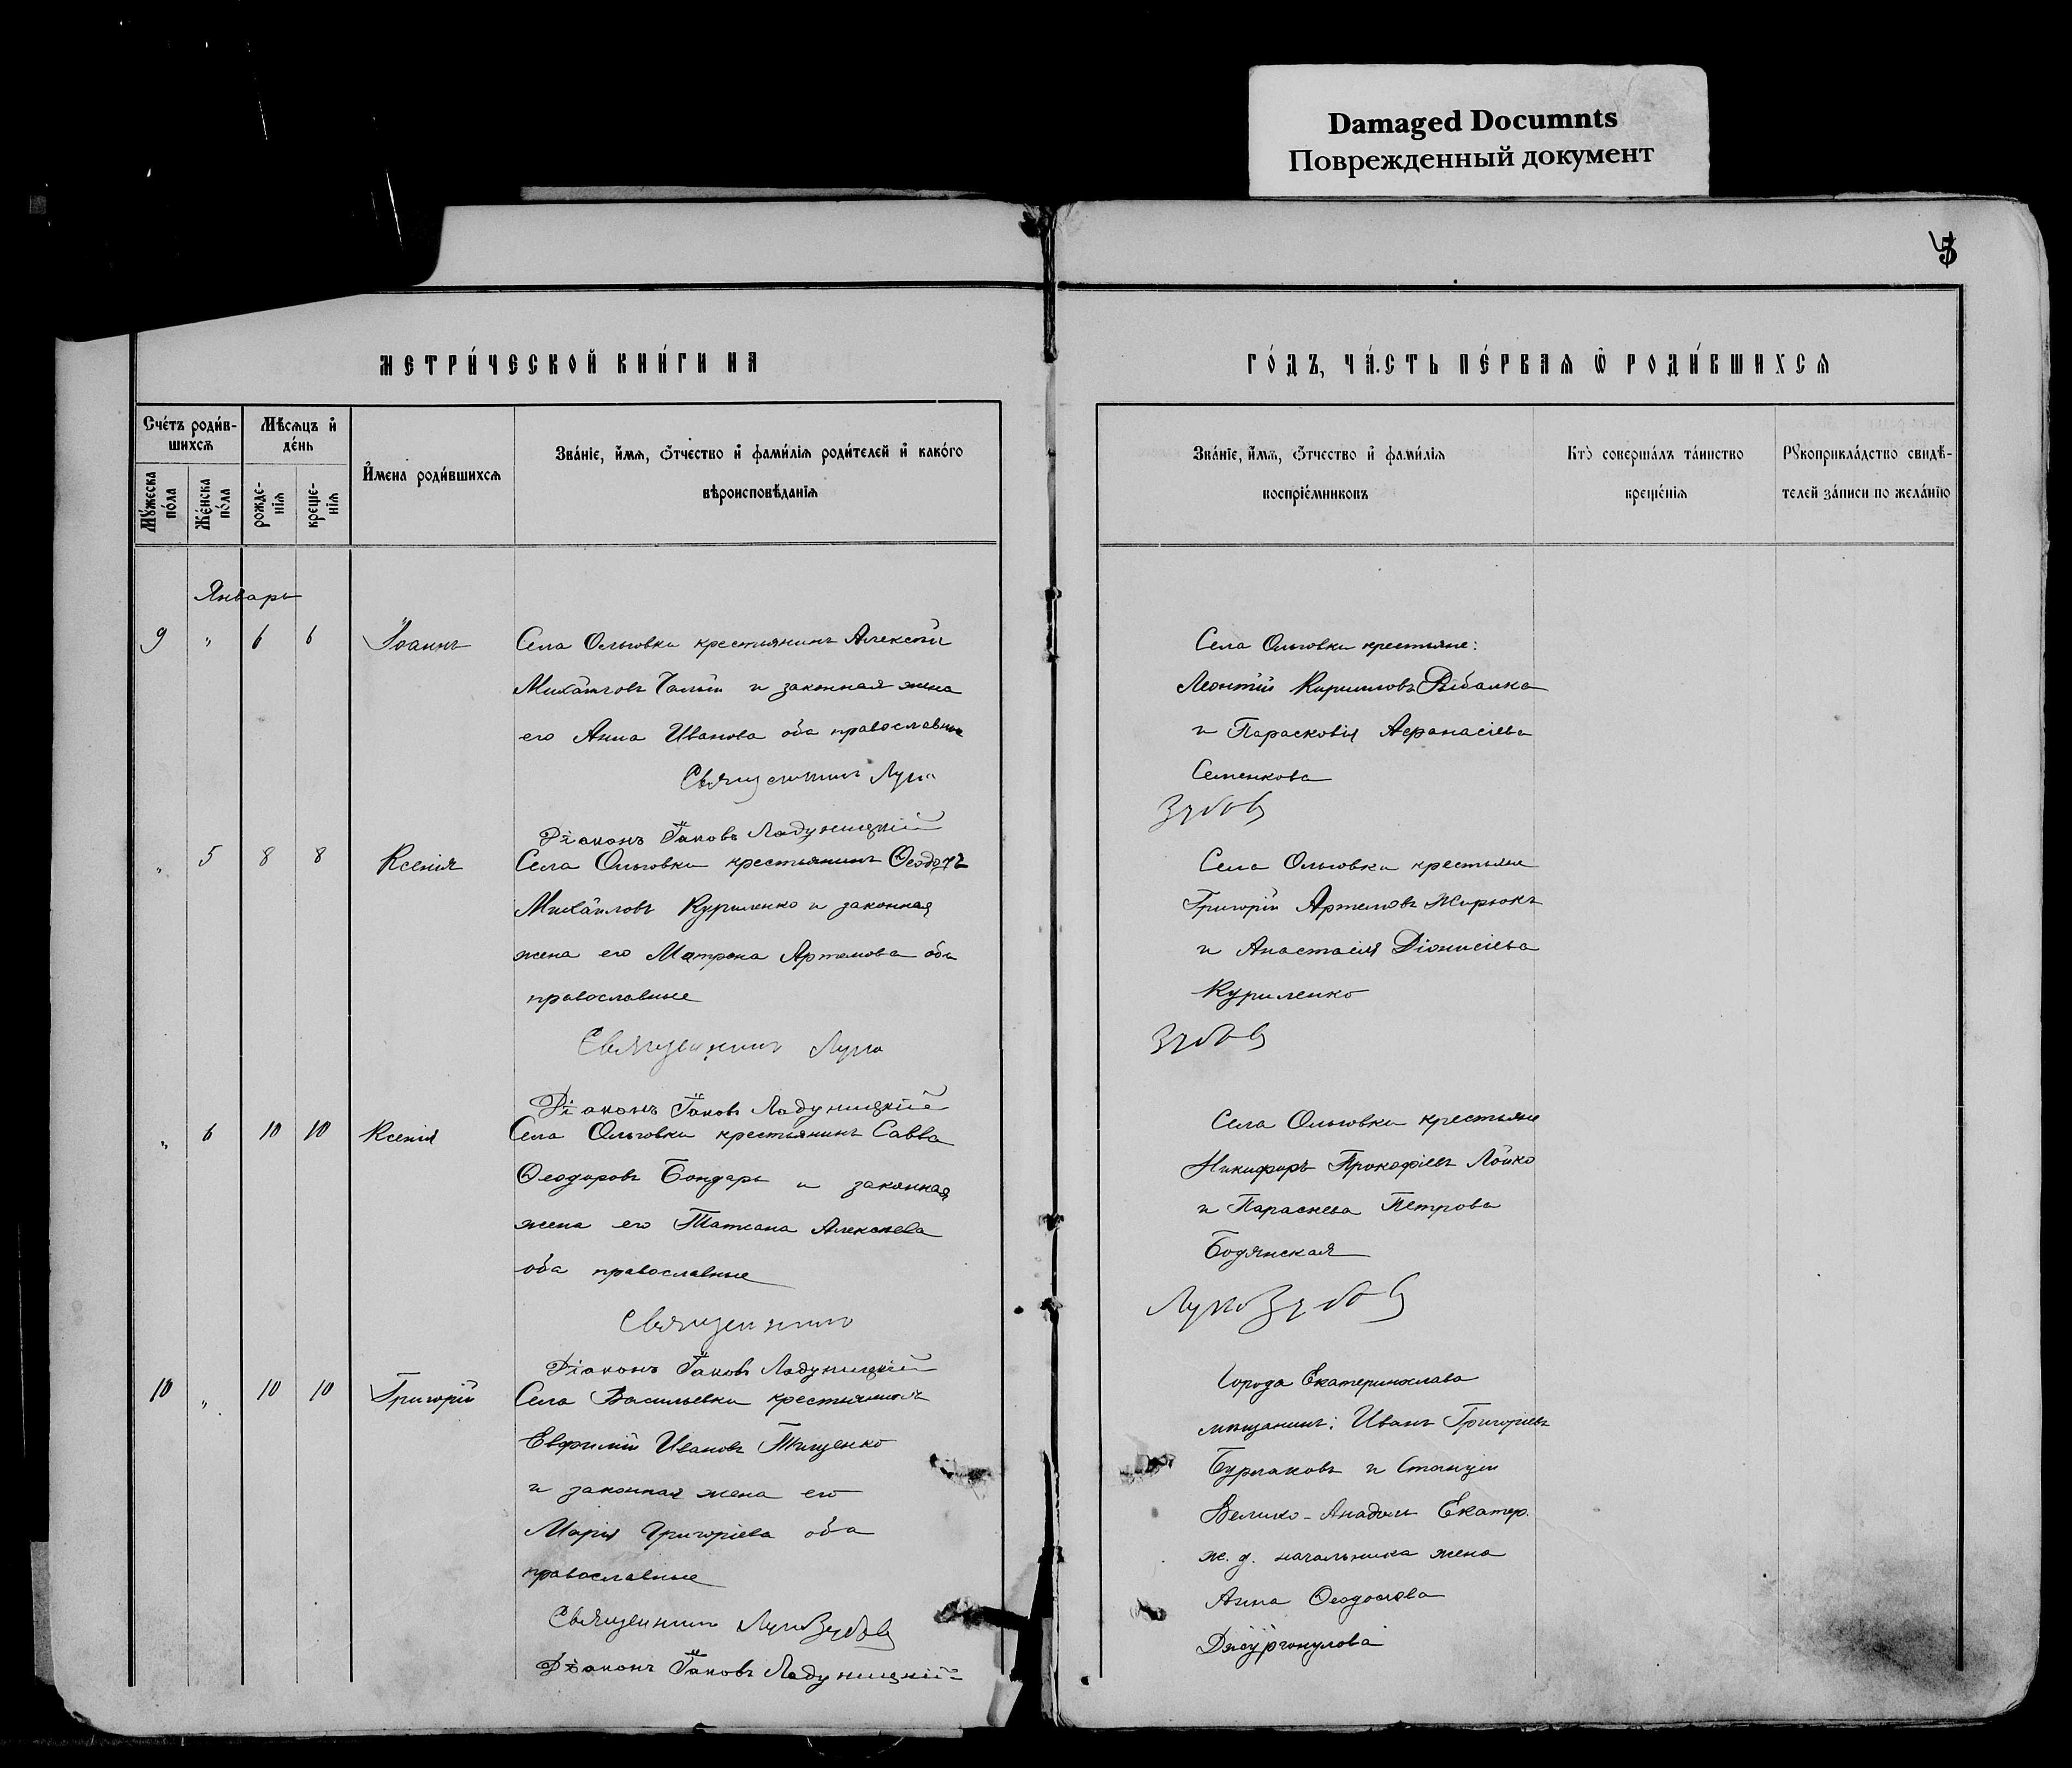 Damaged Documnts
Поврежденный документ
5
МЕТРИ́ЧЕСКОЙ КНИ́ГИ НА
ГО́ДЪ, ЧА́СТЬ ПЕ́РВАЯ Ѿ РОДИ́ВШИХСѦ
Сче́тъ роди́в-
шихсѧ
Мѣ́сѧцъ и҆
де́нь
И҆мена роди́вшихсѧ
Зва́нїе, и҆́мѧ, ѻ҆́тчество и҆ фами́лїѧ роди́телей и҆ како́го
вѣроисповѣ́данїѧ
Мꙋ́жеска
по́ла
Же́нска
по́ла
рожде-
нїѧ
креще-
нїѧ
Зва́нїе, и҆́мѧ, ѻ҆́тчество и҆ фами́лїѧ
воспрїе́мниковъ
Кто̀ соверша́лъ та́инство
креще́нїѧ
Рꙋкоприкла́дство свидѣ́-
телей за́писи по жела́нїю
Январь
9 " 6 6 Іоаннъ Села Ольговки крестьянинъ Алексѣй
Михаиловъ и законная жена
его Анна Иванова оба православные
Священникъ Лука
Діаконъ Іаковъ Ладужицкій
Села Ольговки крестьяне:
Леонтій Кирилловъ
и Парасковія Афанасіева
Семенкова
Зубовъ
" 5 8 8 Ксенія Села Ольговки крестьянинъ Ѳеодотъ
Михаиловъ Куриленко и законная
жена его Матрона Артемова оба
православные
Священникъ Лука
Діаконъ Іаковъ Ладужицкій
Села Ольговки крестьяне
Григорій Артемовъ Жирюкъ
и Анастасія Діонисіева
Куриленко
Зубовъ
" 6 10 10 Ксенія Села Ольговки крестьянинъ Савва
Ѳеодоровъ Бондарь и законная
жена его Татіана Алексѣева
оба православные
Священникъ
Діаконъ Іаковъ Ладужицкій
Села Ольговки крестьяне
Никифоръ Прокофіевъ Лойко
и Параскева Петрова
Бодянская
Лука Зубовъ
10 " 10 10 Григорій Села Васильевки крестьянинъ
Евфимій Ивановъ Тищенко
и законная жена его
Марія Григоріева оба
православные
Священникъ Лука Зубовъ
Діаконъ Іаковъ Ладужицкій
Города Екатеринослава
мѣщанинъ: Иванъ Григоріевъ
Бурлаковъ и Станціи
Велико-Анадоль Екатер.
ж. д. начальника жена
Анна Ѳеодосіева